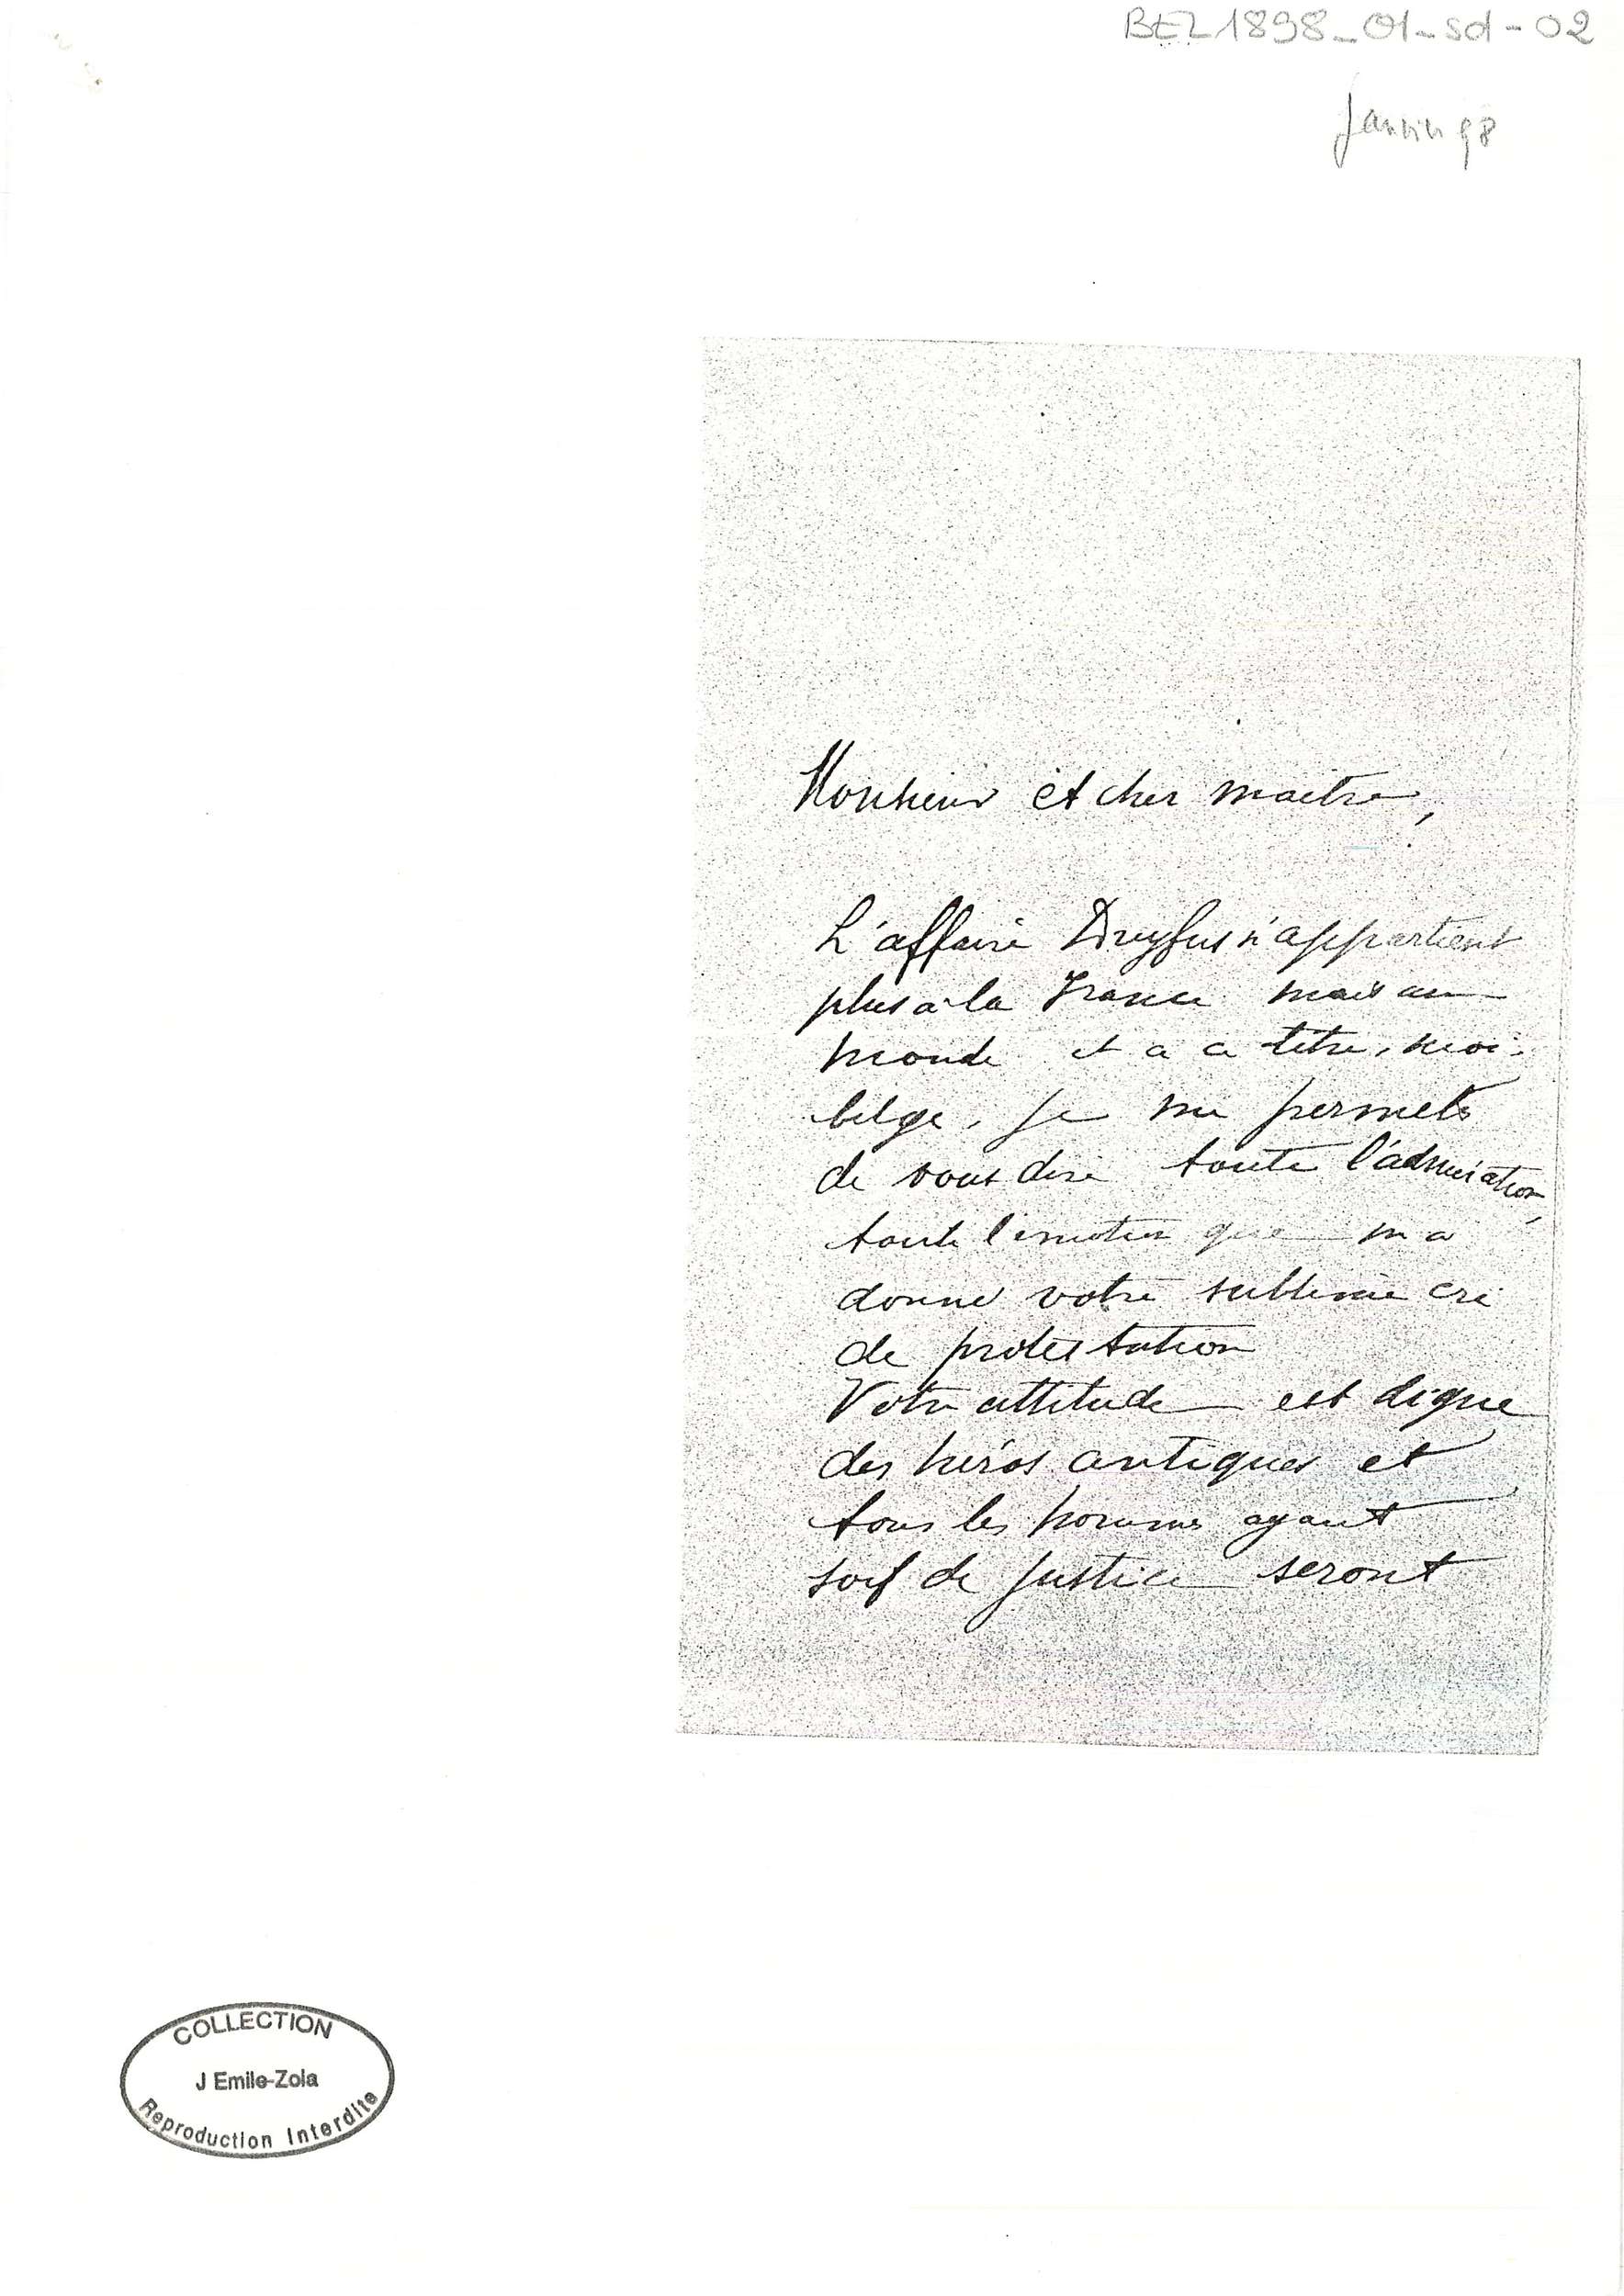 BEL1898_01_sd-02
Janvier 98
Monsieur et cher maitre,
L'affaire Dreyfus n'appartient
plus à la France mais au
monde et a ce titre, moi
belge, je me permets
de vous dire toute l'admiration,
toute l'emotion que m'a
donné votre sublime cri
de protestation
Votre attitude est digne
des héros antiques et
tous les hommes ayant
soif de justice seront
COLLECTION
J Emile-Zola
Reproduction Interdite